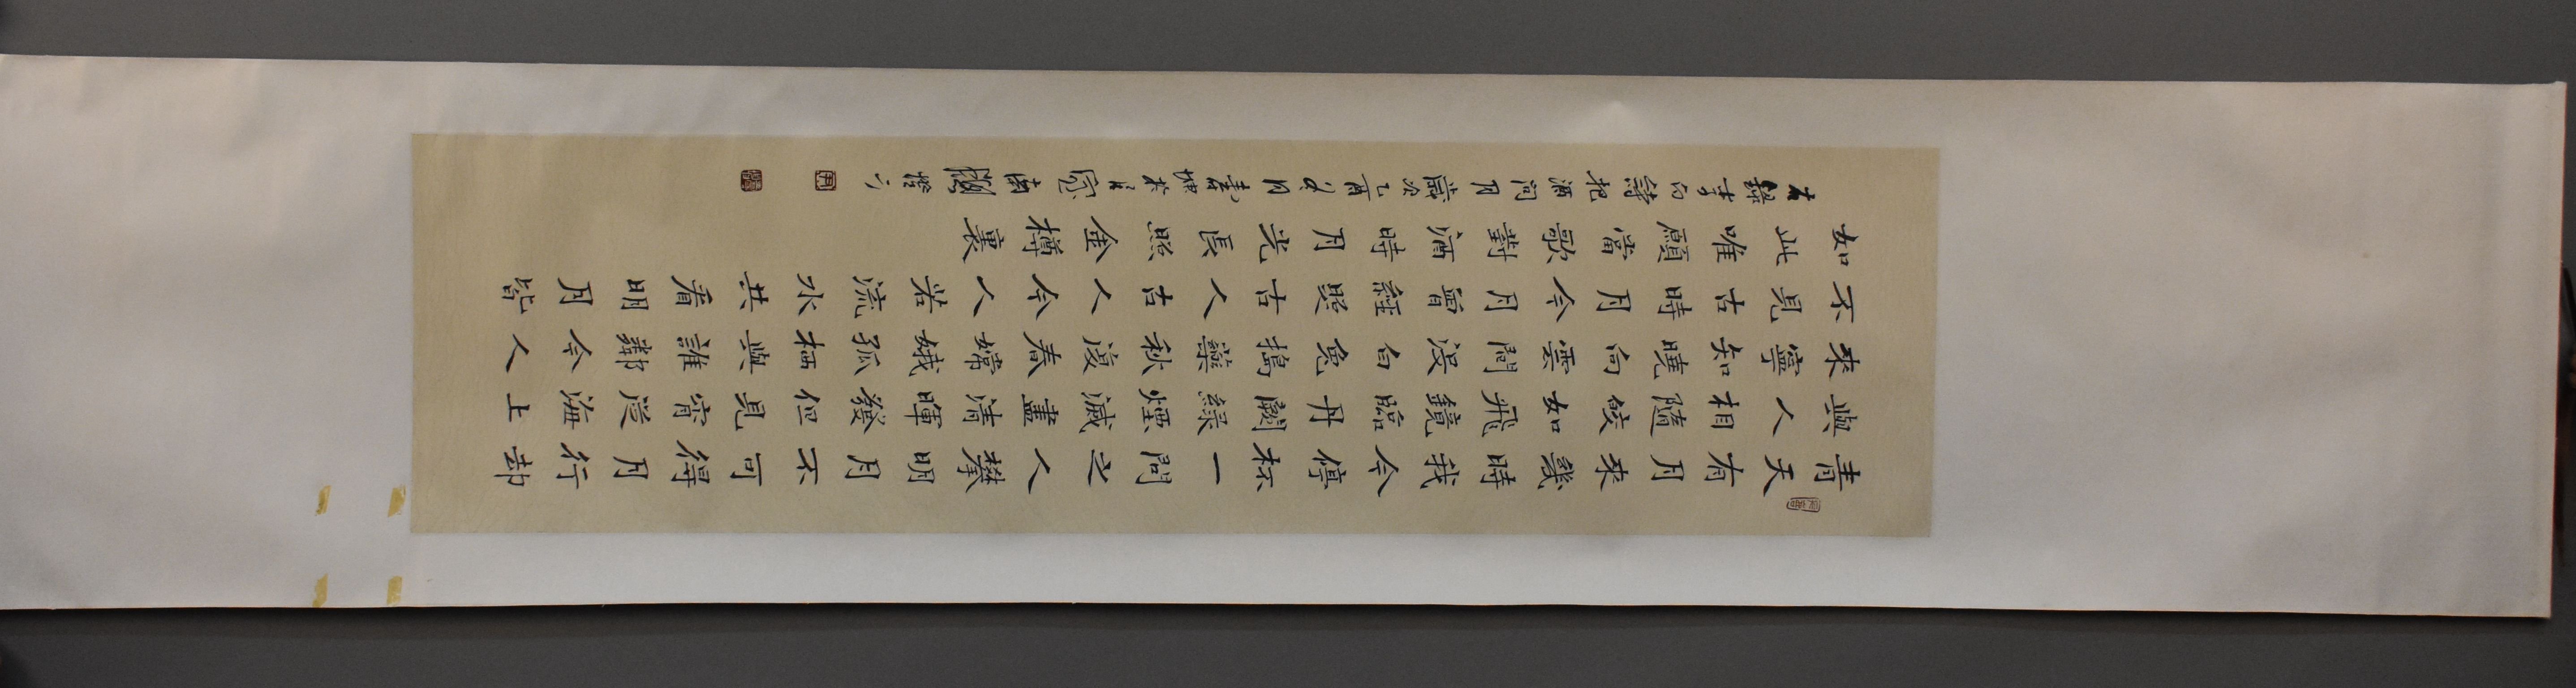 青天有月來幾時我今停杯一問之人攀明月不可得月行却
與人相隨皎如飛鏡臨丹闕綠煙滅盡清暉發但見宵從海上
來寧知曉向雲間沒白兔擣藥秋復春嫦娥孤栖與誰鄰今人
不見古時月今月曾經照古人古人今人若流水共看明月皆
如此唯願當歌對酒時月光長照金樽裏
右錄李白詩把酒問月歲次乙酉月書於南燈下